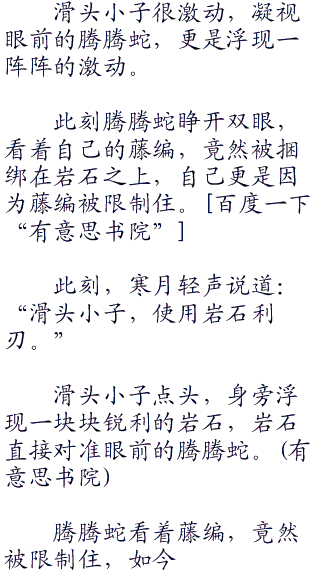 滑头小子很激动，凝视
眼前的腾腾蛇，更是浮现一
阵阵的激动。
此刻腾腾蛇睁开双眼，
看着自己的藤编，竟然被捆
绑在岩石之上，自己更是因
为藤编被限制住。[百度一下
“有意思书院”]
此刻，寒月轻声说道：
“滑头小子，使用岩石利
刃。”
滑头小子点头，身旁浮
现一块块锐利的岩石，岩石
直接对准眼前的腾腾蛇。(有
意思书院)
腾腾蛇看着藤编，竟然
被限制住，如今